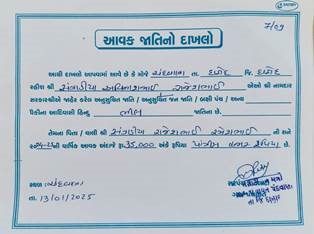 7/09
આવક જાતિનો દાખલો
આથી દાખલો આપવામાં આવે છે કે મોજે ચંદવાણા તા. દાહોદ જિ. દાહોદ
રહીશ શ્રી સંગાડીયા અશ્વિનભાઈ રાજેશભાઈ એઓ શ્રી નામદાર
સરકારશ્રીએ જાહેર કરેલ અનુસુચિત જાતિ / અનુસુચિત જન જાતિ / બક્ષી પંચ / અન્ય
પૈકીના આદિવાસી હિન્દુ ભીલ જાતિના છે.
તેમના પિતા / વાલી શ્રી સંગાડીયા રાજેશભાઈ રમેશભાઈ નો સને
ની વાર્ષિક આવક અંદાજે રૂા. 35,000 અંકે રૂપિયા પાંત્રીસ હજાર છે.
સ્થળ: ચંદવાણા
તા. 13/01/2025